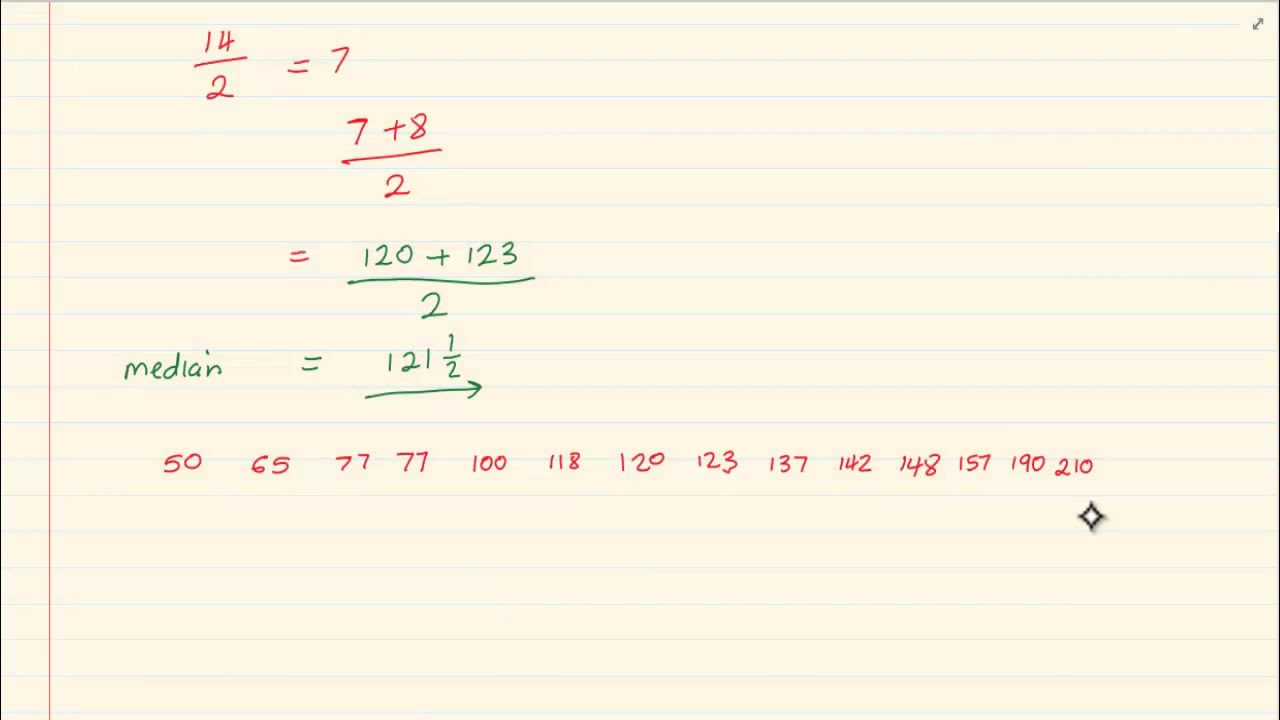 14
2
= 7
7 + 8
2
= 120 + 123
2
median = 121 1/2
50 65 77 77 100 118 120 123 137 142 148 157 190 210